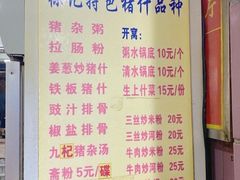 标记特色猪什品种
猪杂粥
拉肠粉
姜葱炒猪什
铁板猪什
豉汁排骨
椒盐排骨
九杞猪杂汤
斋粉 5元/碟
开窝:
粥水锅底 10元/个
清水锅底 10元/个
生上什菜 15元/份
三丝炒米粉 20元
三丝炒河粉 20元
牛肉炒米粉 25元
牛肉炒河粉 25元